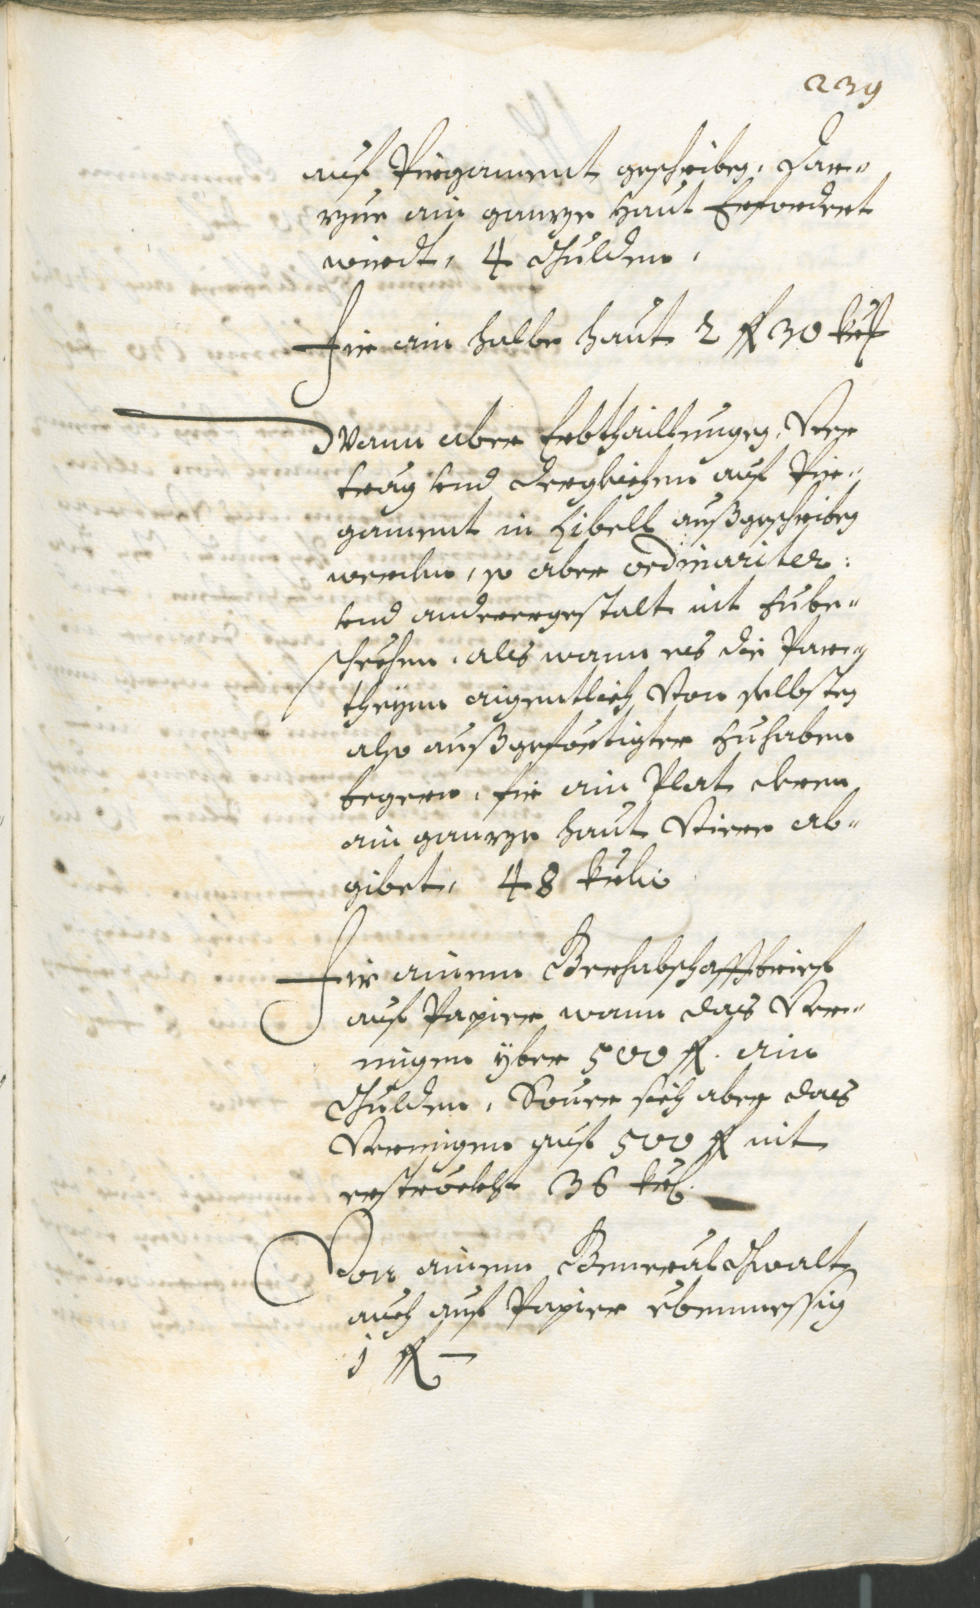 239
auf Pirgament geschriben, dar-
zue ain ganze Haut Erfordert
wirdt, 4 Gulden,
Fir ain halbe haut 2 fl 30 kr
Wann aber Erbthaillungen, Ver-
träg und dergleichen auf Pir-
gament in Libell außgeschriben
werden, so aber ordinariter
und anderergestalt nit zube-
schechen, als wann es die Par-
theyen aigentlich von selbsten
also außgefertigter zuhaben
begern, fir ain Plat deren
ain ganze haut Vier ab-
gibet, 48 kr
Fir ainen Gerhabschafftbrief
auf Papier wann das Ver-
migen yber 500 fl. ain
Gulden, Sover sich aber das
Vermigen auf 500 fl nit
erströckht 36 kr.
Von ainem General Gwalt
auch auf Papier ebenmessig
1 fl —